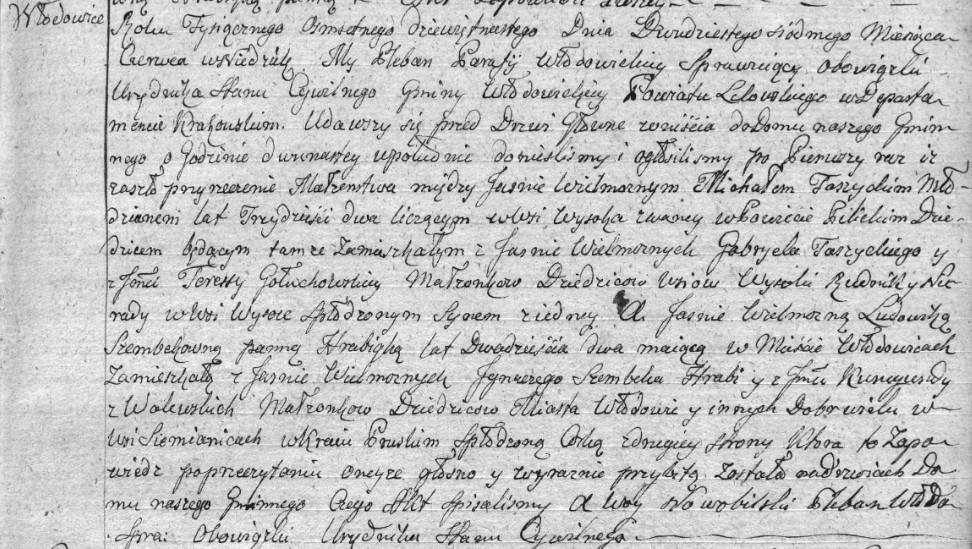 Włodowice
Roku Tysiącznego Osmsetnego dziewiętnastego Dnia Dwudziestego siódmego Miesiąca
Czerwca w Niedzielę My Pleban Parafij Włodowickiey Sprawuiący obowiązki
Urzędnika Stanu Cywilnego Gminy Włodowickiey Powiatu Lelowskiego w Departa
mencie Krakowskim. Udawszy się przed Drzwi Główne wniścia do Domu naszego Gmin
nego o Godzinie dwunastey w południe donieśliśmy i ogłosiliśmy po Pierwszy raz iż
zaszło przyrzeczenie Małżenstwa między Jaśnie Wielmożnym Michałem Taszyckim Mło-
dzianem lat Trzydzieści dwa liczącym w Wsi Wysoka zwaney w Powiecie Pilickim Dzie-
dzicem będącym tamże Zamieszkałym z Jaśnie Wielmożnych Gabryela Taszyckiego y
z Teressy Gołuchowskiey Małżonkow Dziedzicow Wsiow Wysoki Rudniki y Nie
rady w Wsi Wysoce Spłodzonym Synem z iedney A Jaśnie Wielmożną Ludowiką
Szembekowną panną Hrabiąką lat Dwadzieścia dwa maiącą w Mieście Włodowicach
Zamieszkałą z Jaśnie Wielmożnych Ignacego Szembeka Hrabi y z Kunegundy
z Walewskich Małżonkow Dziedzicow Miasta Włodowic y innych Dobr wielu w
Wsi Siemianicach w Kraiu Pruskim Spłodzoną Corką z drugiey strony Ktora to Zapo
wiedz po przeczytaniu oneyże głosno y wyraznie przybitą została na drzwiach Do
mu naszego Gminnego Czego Akt spisaliśmy Pleban Włodo
Spra: Obowiązki Urzędnika Stanu Cywilnego